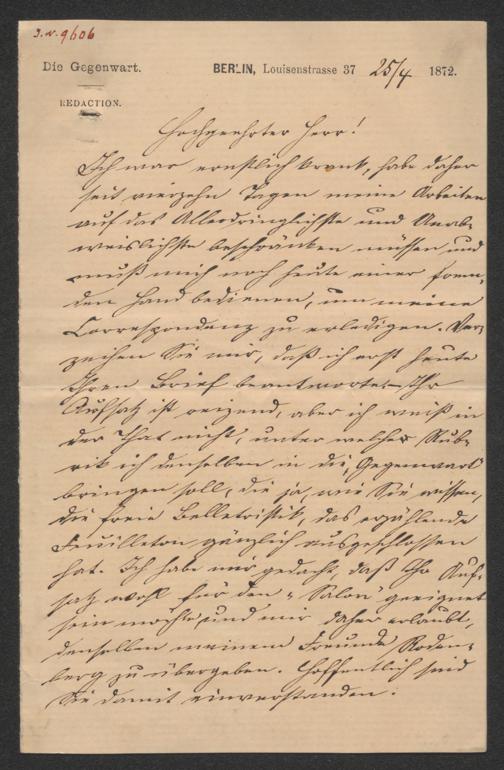 J.N. 9606
Die Gegenwart.
BERLIN, Louisenstrasse 37 25/4 1872.
REDACTION.
Hochgeehrter Herr!
Ich war ernstlich krank, habe daher
seit vierzehn Tagen meine Arbeiten
auf das Allerdringlichste und Unab-
weislichste beschränken müssen und
muß mich noch heute einer frem-
den Hand bedienen, um meine
Correspondenz zu erledigen. Ver-
zeihen Sie mir, daß ich erst heute
Ihren Brief beantworte. Ihr
Aufsatz ist reizend, aber ich weiß in
der That nicht, unter welcher Rub-
rik ich denselben in die „Gegenwart“
bringen soll, die ja, wie Sie wissen,
die freie Belletristik, das erzählende
Feuilleton gänzlich ausgeschlossen
hat. Ich habe mir gedacht, daß Ihr Auf-
satz wohl für den „Salon“ geeignet
sein möchte und mir daher erlaubt,
denselben meinem Freunde Roden-
berg zu übergeben. Hoffentlich sind
Sie damit einverstanden.